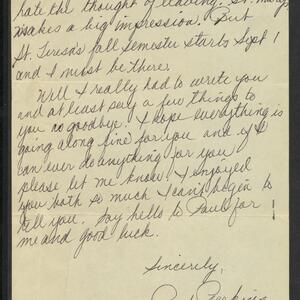 hate the thought of leaving. St. Mary
makes a big impression. But
St. Teresa's fall semester starts Sept 1
and I must be there.
Well I really had to write you
and at least say a few things to
you no goodbye. I hope everything is
going along fine for you and if I
can ever do anything for you
please let me know. I enjoyed
you both so much I can't begin to
tell you. Say hello to Paul for
me and good luck.
Sincerely,